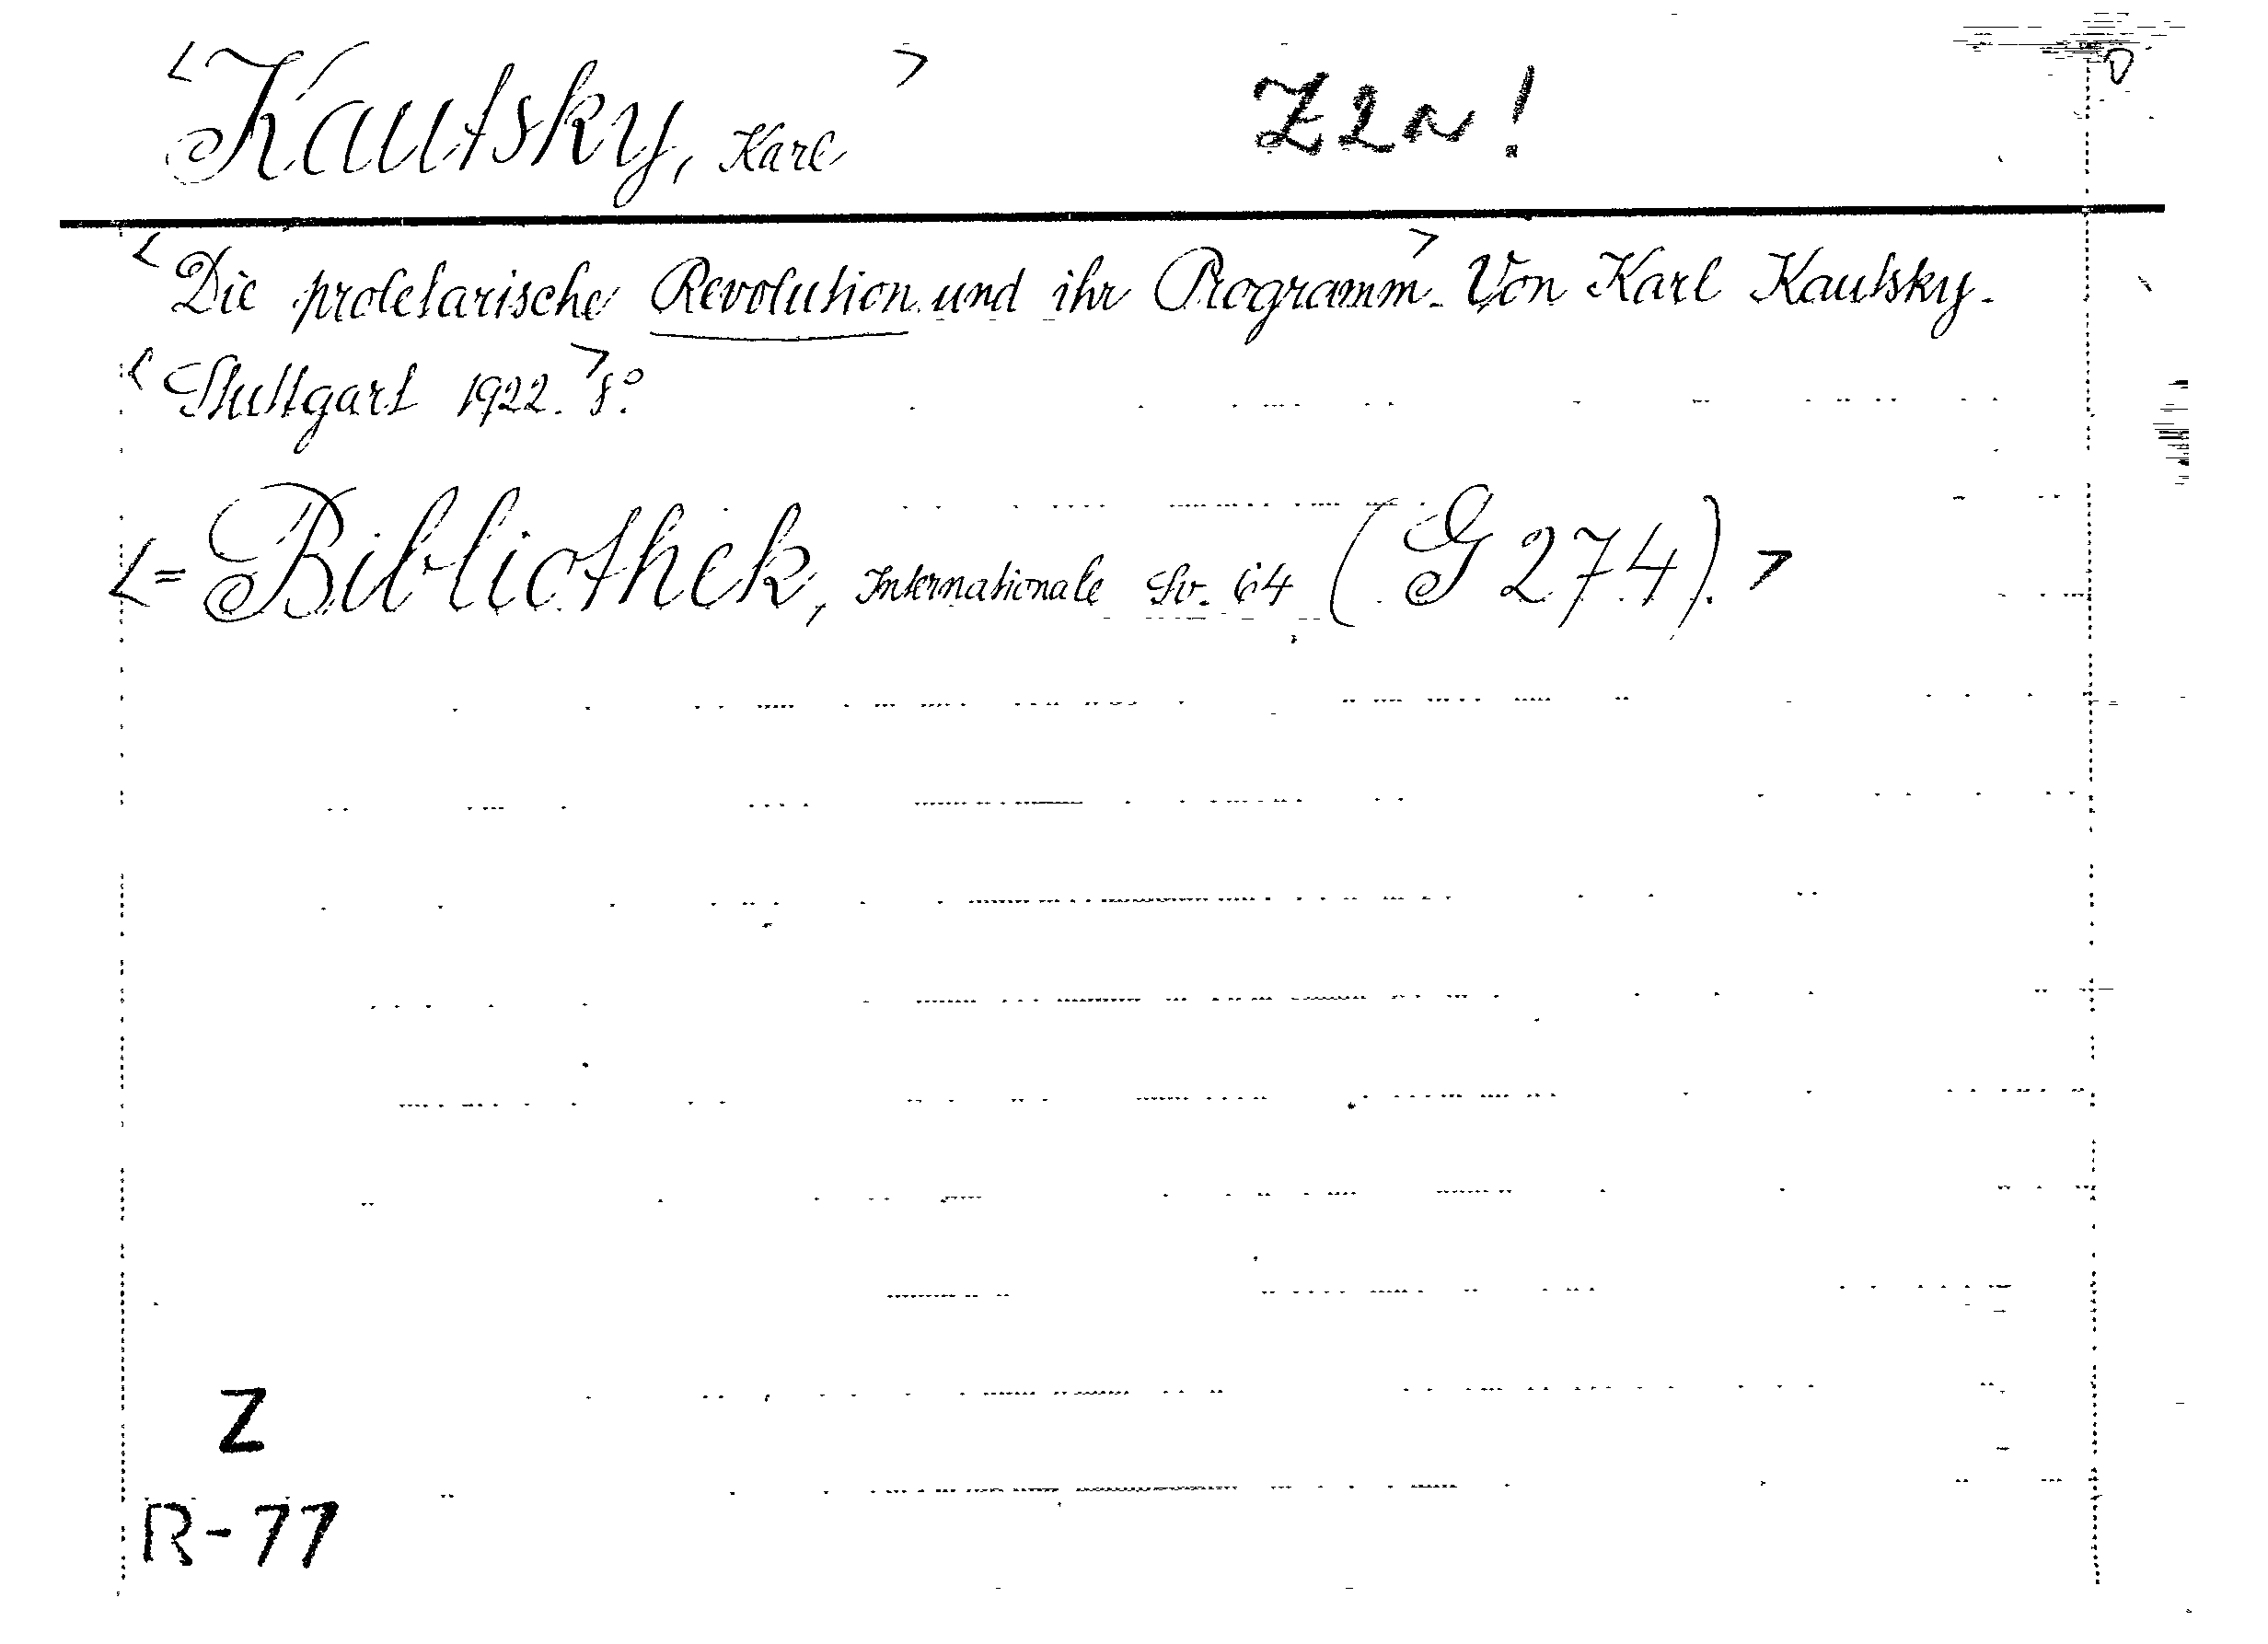 <Kautsky, Karl> Z2N!
<Die proletarische Revolution und ihr Programm.> Von Karl Kautsky.
<Stuttgart 1922.> 8°.
<= Bibliothek, Internationale Sv. 64 (G 274).>
Z
R-77